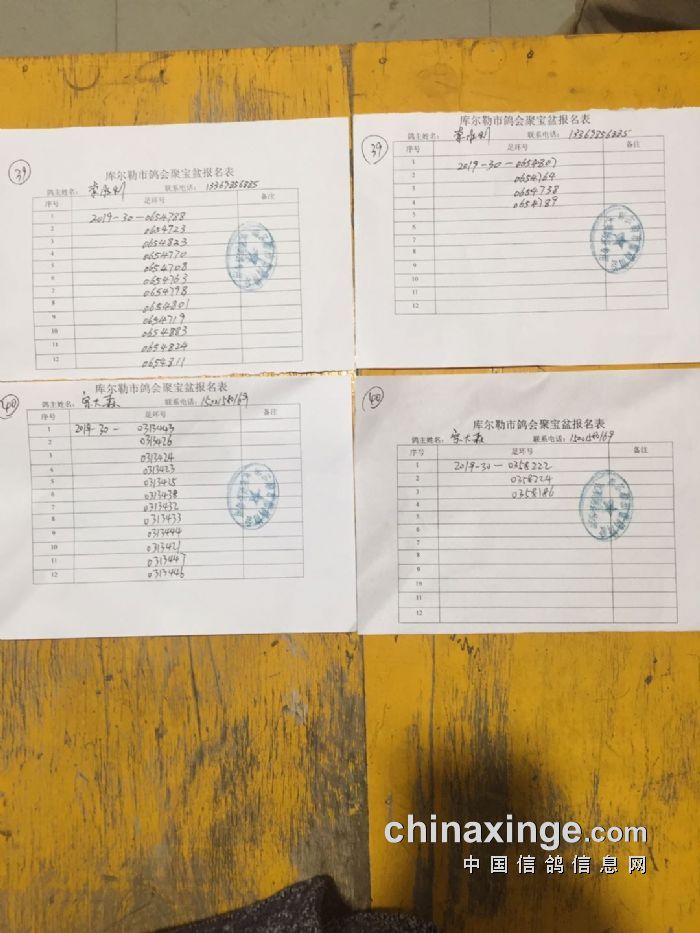 39
库尔勒市鸽会聚宝盆报名表
鸽主姓名: 联系电话: 13369856885
序号 足环号 备注
1 2019-30-0654788
2 0654723
3 0654823
4 0654770
5 0654708
6 0654763
7 0654798
8 0654801
9 0654719
10 0654883
11 0654824
12 0654811
39
库尔勒市鸽会聚宝盆报名表
鸽主姓名: 联系电话: 13369856885
序号 足环号 备注
1 2019-30-0654807
2 0654764
3 0654738
4 0654789
5
6
7
8
9
10
11
12
40
库尔勒市鸽会聚宝盆报名表
鸽主姓名: 宋大森 联系电话:
序号 足环号 备注
1 2019-30-0313443
2 0313426
3 0313424
4 0313423
5 0313425
6 0313438
7 0313432
8 0313433
9 0313444
10 0313421
11 0313447
12 0313446
40
库尔勒市鸽会聚宝盆报名表
鸽主姓名: 宋大森 联系电话:
序号 足环号 备注
1 2019-30-0358222
2 0358224
3 0358186
4
5
6
7
8
9
10
11
12
chinaxinge.com
中国信鸽信息网